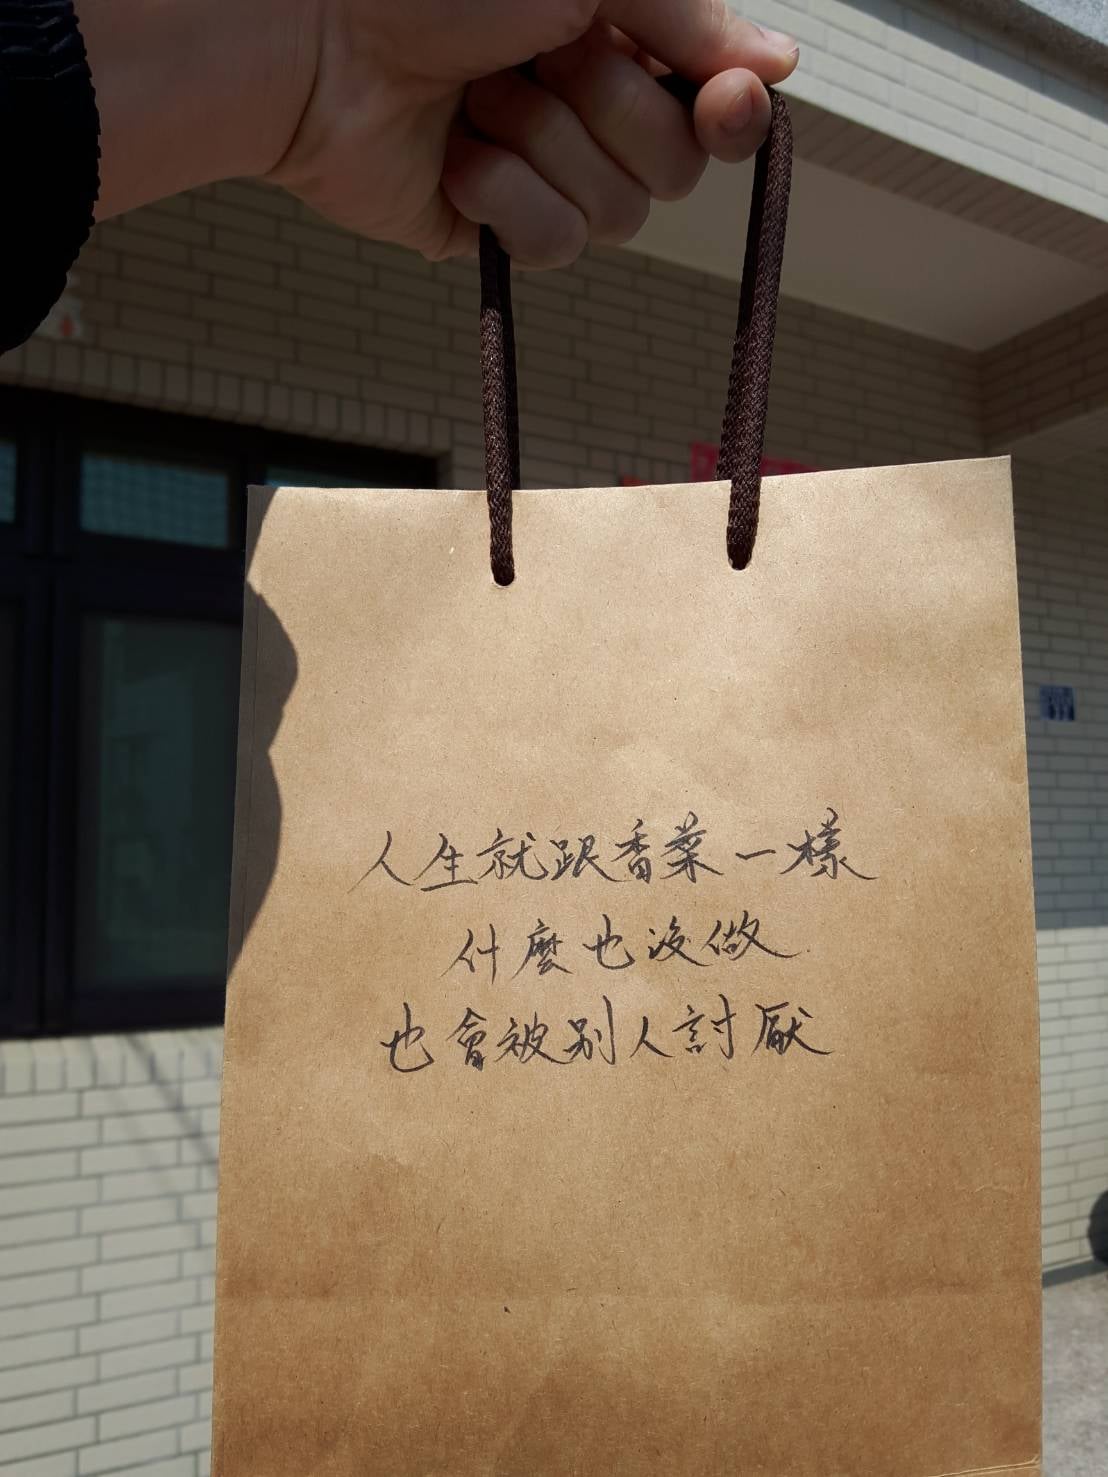 人生就跟香菜一樣
什麼也沒做
也會被別人討厭